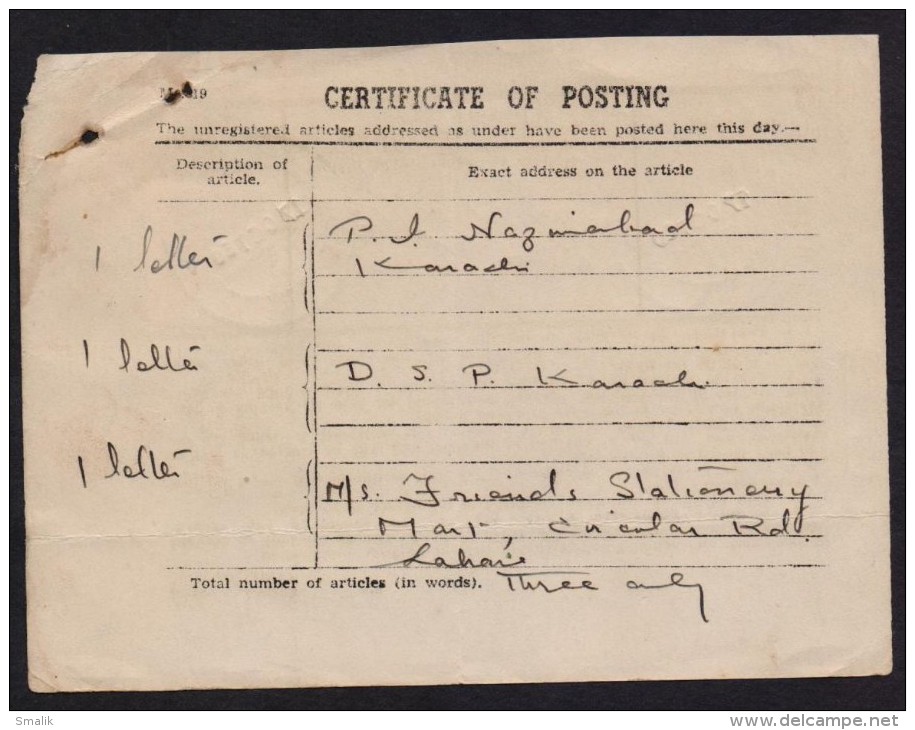 CERTIFICATE OF POSTING
The unregistered articles addressed as under have been posted here this day.—
Description of article.
Exact address on the article
1 letter
P.I. Nazimabad
Karachi
1 letter
D. S. P. Karachi
1 letter
M/s. Friends Stationery
Mart, Circular Rd.
Lahore
Total number of articles (in words). Three only
Smalik
www.delcampe.net